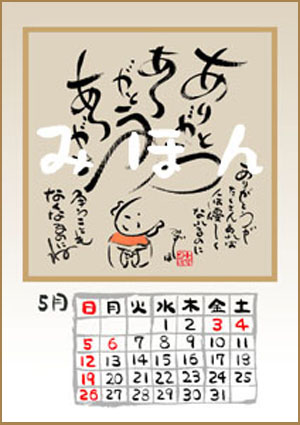 ありがとう
ありがとう
ありがとう
みほん
ありがとうが
たくさんあれば
人は優しく
なれるのに
争うことも
なくなるのにね
5月
日 月 火 水 木 金 土
1 2 3 4
5 6 7 8 9 10 11
12 13 14 15 16 17 18
19 20 21 22 23 24 25
26 27 28 29 30 31